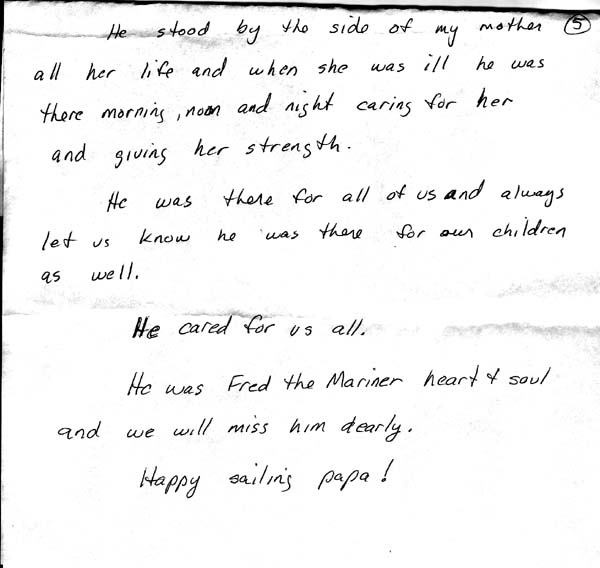 He stood by the side of my mother ⑤
all her life and when she was ill he was
there morning, noon and night caring for her
and giving her strength.
He was there for all of us and always
let us know he was there for our children
as well.
He cared for us all.
He was Fred the Mariner heart & soul
and we will miss him dearly.
Happy sailing papa!